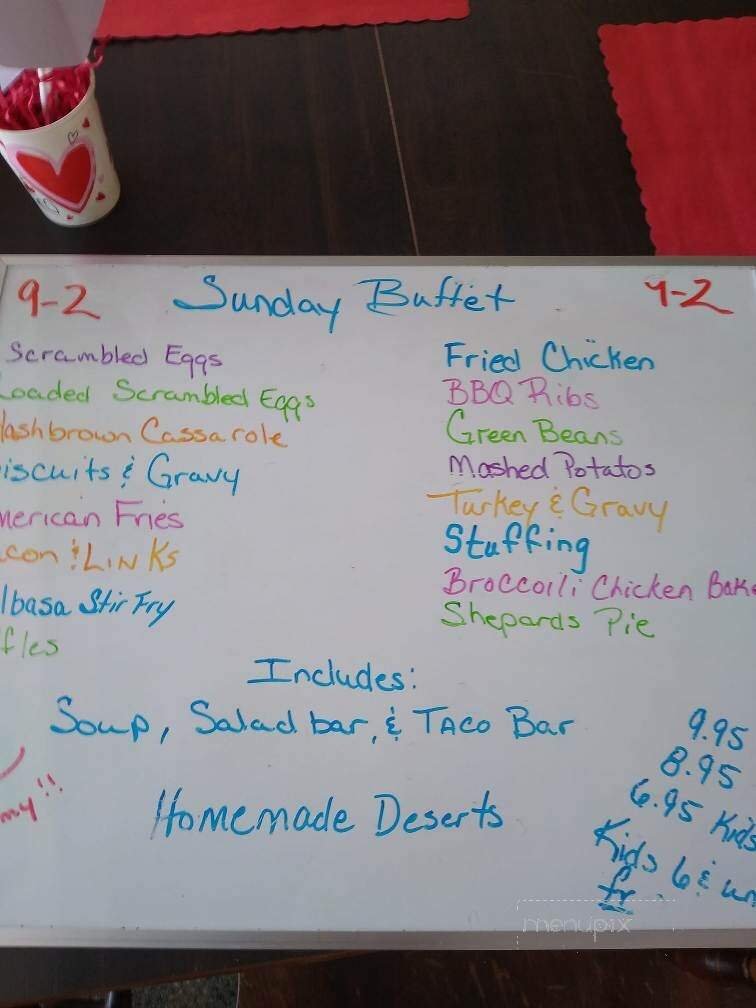 9-2 Sunday Buffet 9-2
Scrambled Eggs
Loaded Scrambled Eggs
Hashbrown Cassarole
iscuits & Gravy
merican Fries
con & LINKS
lbasa Stir Fry
fles
Fried Chicken
BBQ Ribs
Green Beans
Mashed Potatos
Turkey & Gravy
Stuffing
Broccoili Chicken Bake
Shepards Pie
Includes:
Soup, Salad bar, & TACO Bar
my!!
Homemade Deserts
9.95
8.95
6.95 Kids
Kids 6 & un
fr
menupix